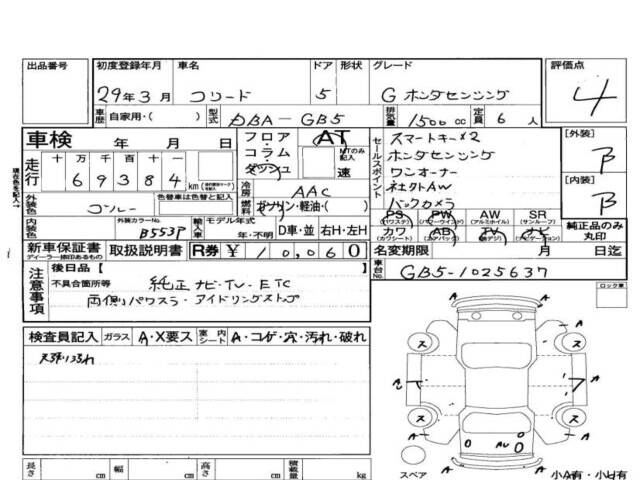 出品番号 初度登録年月 車名 ドア 形状 グレード 評価点
29年3月 フリード 5 G ホンダセンシング 4
車歴 自家用・( ) 型式 DBA-GB5 排気量 1500cc 定員 6人
車検 年 月 日 フロア・コラム・ダッシュ AT MTのみ記入 速
走行 十万千百十一
69384 km
冷房 AAC
外装色 色替車は色替と記入 燃料 ガソリン・軽油・( )
内装色 外装カラーNo. B553P 輸入車 モデル年式 年・不明 D車・並 右H・左H
セールスポイント スマートキー×2
ホンダセンシング
ワンオーナー
社外AW
バックカメラ
[外装] B
[内装] B
PS (パワステ) PW (パワーウインド) AW (アルミホイル) SR (サンルーフ)
カワ (カワシート) AB TV ナビ
純正品のみ丸印
新車保証書 ディーラー捺印あるもの 取扱説明書 R券 ¥ 10,060 名変期限 月 日迄
車台No. GB5-1025637
注意事項 後日品 [ ]
不具合箇所等 純正ナビ・TV・ETC
両側パワスラ・アイドリングストップ
ロック車
検査員記入 ガラス A・X要ス 室内シート A・コゲ・穴・汚れ・破れ
A A
ス ス
A A
ス ス
A A
スペア 小A有・小U有
長さ cm 幅 cm 高さ cm 積載量 kg